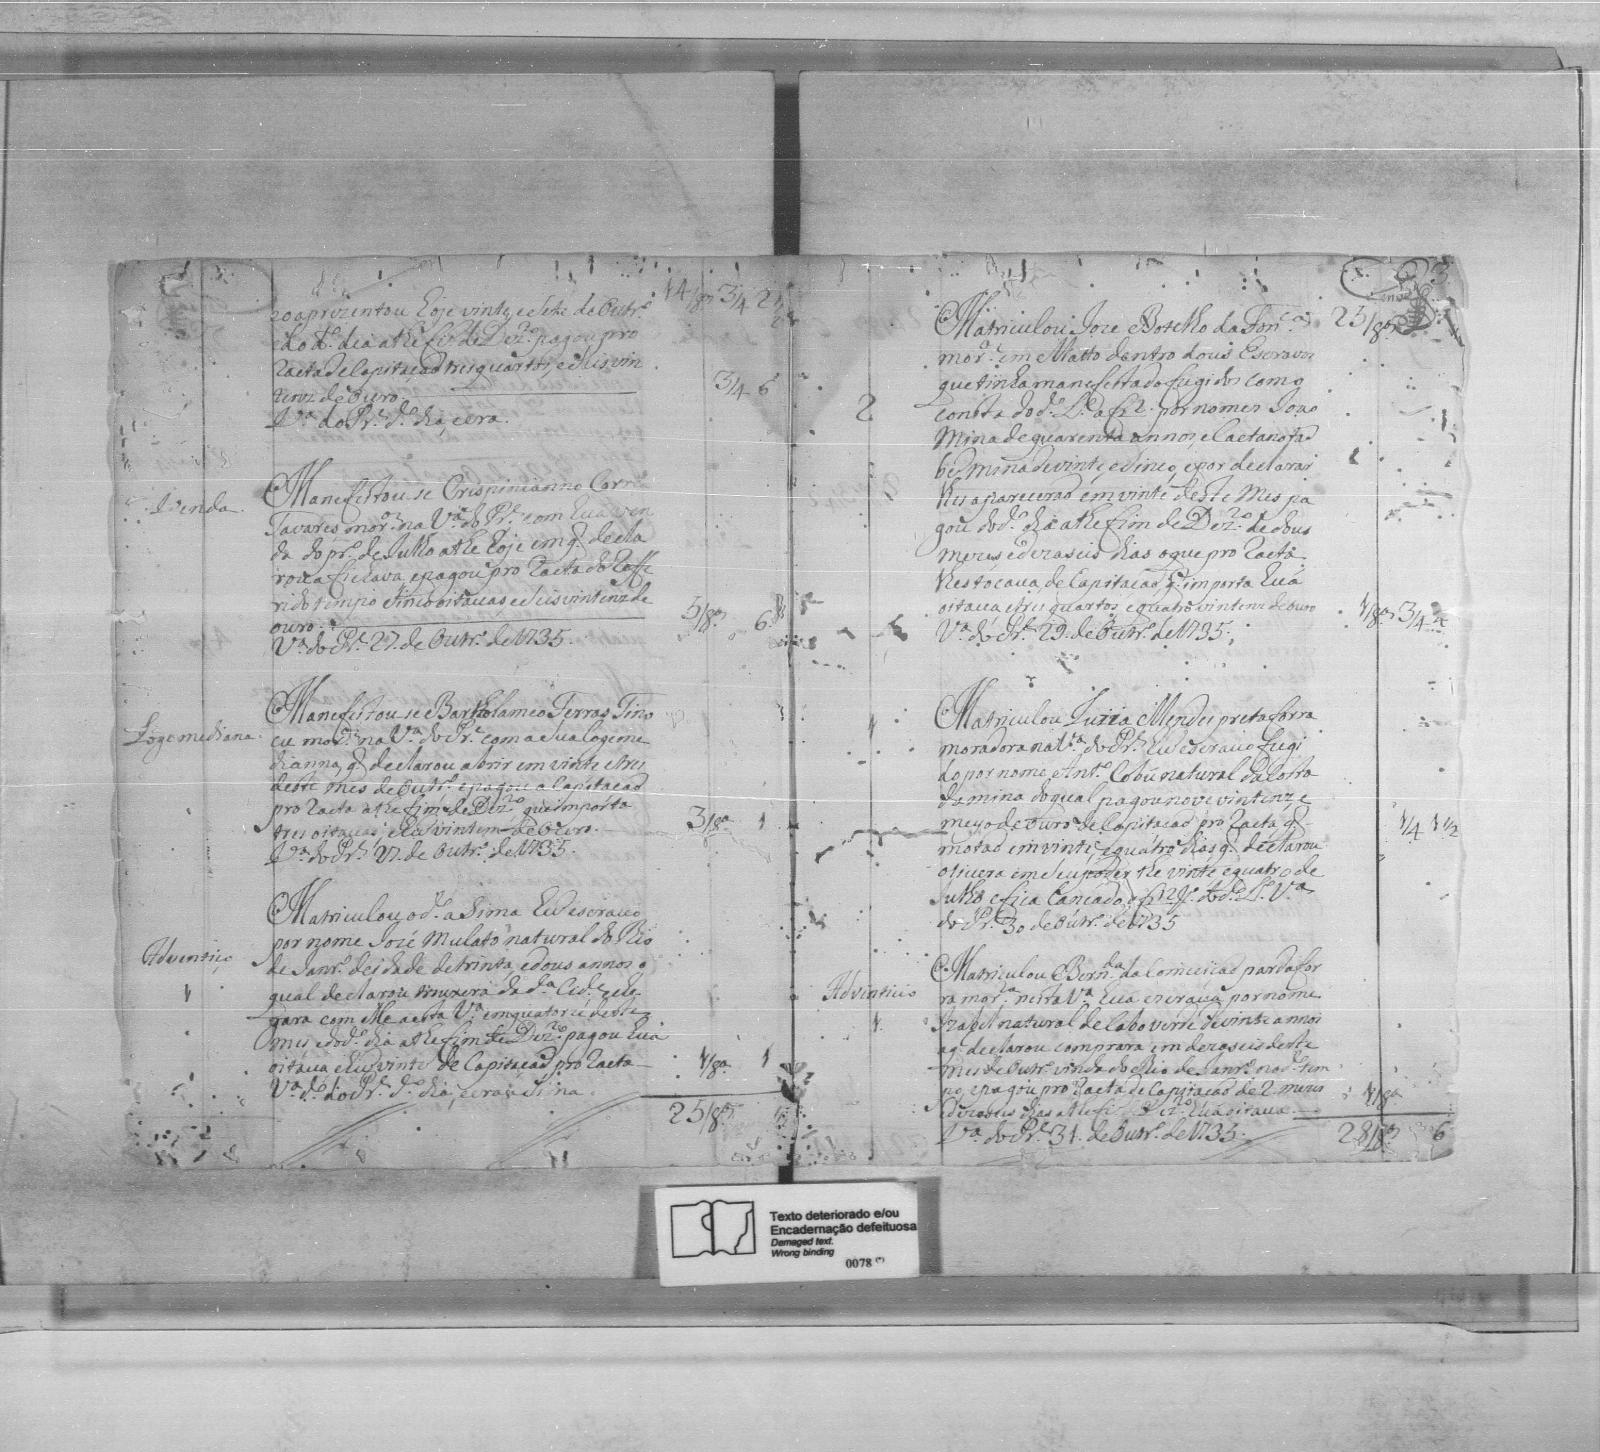 14/8as 3/4 2
zo aprezentou hoje vinte e sete de Outr.º
e do d.º dia athe fim de Dez.ro pagou pro
racta de Capitaçaõ tres quartos, e seis vin
tenz de Ouro. 3/4 6
V.ª do Pr.e d.º dia, e era.
Venda
Manefestou-se Crispinianno Corr.ª
Tavares mor.or na V.ª do Pr.e com huã ven
da do pr.º de Julho athe hoje em q. decla
rou a fichava, e pagou pro racta do reffe
rido tempo sinco oitavas e seis vintenz de
ouro. 5/8as 6
V.ª do Pr.e 27. de Outr.º de 1735.
Loge mediana
Manefestou-se Bartholameo Ferras Tino
co mor.or na V.ª do Pr.e com a sua loge me
dianna, q. declarou abrir em vinte e tres
deste mes de Outr.º e pagou a Capitacaõ
pro racta athe fim de Dez.ro que importa
tres oitavas, e hu vintem de Ouro. 3/8as 1
V.ª do Pr.e 27. de Outr.º de 1735.
Adventiço
1
Matriculou o d.º asima hu escravo
por nome José Mulato natural do Rio
de Janr.º de idade de trinta, e dous annos o
qual declarou trouxera da d.ª Cid.e, e che
gara com elle a esta V.ª em quatorze deste
mes, e do d.º dia athe fim de Dez.ro pagou huã
oitava e hu vinte de Capitaçaõ pro racta 1/8a 1
V.ª do Pr.e d.º dia, e era asima.
25/8as
23
25/8as
2
Matriculou Joze Botelho da Fon.ca
mor.or em Matto dentro dous Escravos
que tinha manefestado fugidos como
consta do d.º L.º a f 12. por nomes Joaõ
Mina de quarenta annos, e Caetano
Mina de vinte, e sinco, e por declarar
lhes apareceraõ em vinte deste Mes pa
gou do d.º dia athe fim de Dez.ro de dous
mezes e dezaseis dias o que pro racta
lhes tocava, de Capitacaõ, q. importa huã
oitava e tres quartos, e quatro vintenz de ouro 1/8a 3/4 4
V.ª do Pr.e 29. de Outr.º de 1735.
1
Matriculou Luzia Mendes preta forra
moradora na V.ª do Pr.e hu escravo fugi
do por nome Ant.º Cobú natural da Costa
da mina do qual pagou nove vintenz e
meyo de ouro de Capitacaõ pro racta q.
motaõ em vinte, e quatro dias q. declarou
o tivera em seu poder the vinte e quatro de 1/4 1 1/2
Julho e fica Cancado a f do d.º L.º V.ª
do Pr.e 30 de Outr.º de 1735
Adventicio
1
Matriculou Bern.da da Conceicaõ parda for
ra mor.ª nesta V.ª huã escrava por nome
Izabel natural de Cabo verde de vinte annos
a q. declarou comprara em dezaseis deste
mes de Outr.º vinda do Rio de Janr.º no d.º tem
po, e pagou pro racta de Capitacaõ de 2 mezes
e dezaseis dias athe fim de Dez.ro huã oitava. 1/8a
V.ª do Pr.e 31. de Outr.º de 1735.
28/8as 6
Texto deteriorado e/ou
Encadernação defeituosa
Damaged text.
Wrong binding
0078 (*)